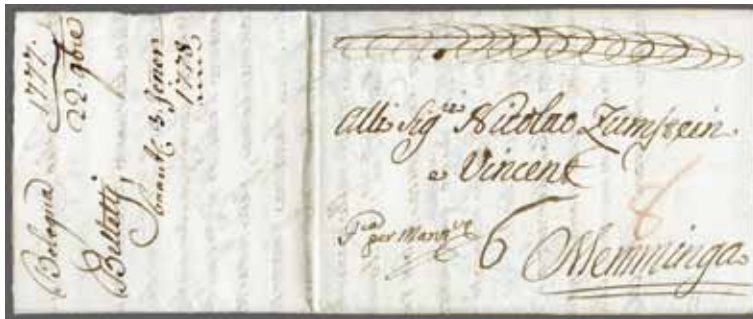 Bologna 1777.
22 9bre
Bellotti
3 Jener
1778
Alli Sig.ri Nicolao Zumstein
e Vincent
per Mant.va 6
8
Memminga